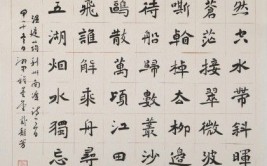 然空水對斜暉
蒼茫接翠微波
嘶看棹去柳邊
待船歸數叢沙
鷗散萬頃江田
飛誰解乘舟尋
五湖烟水獨忘
温庭筠利州南渡詩